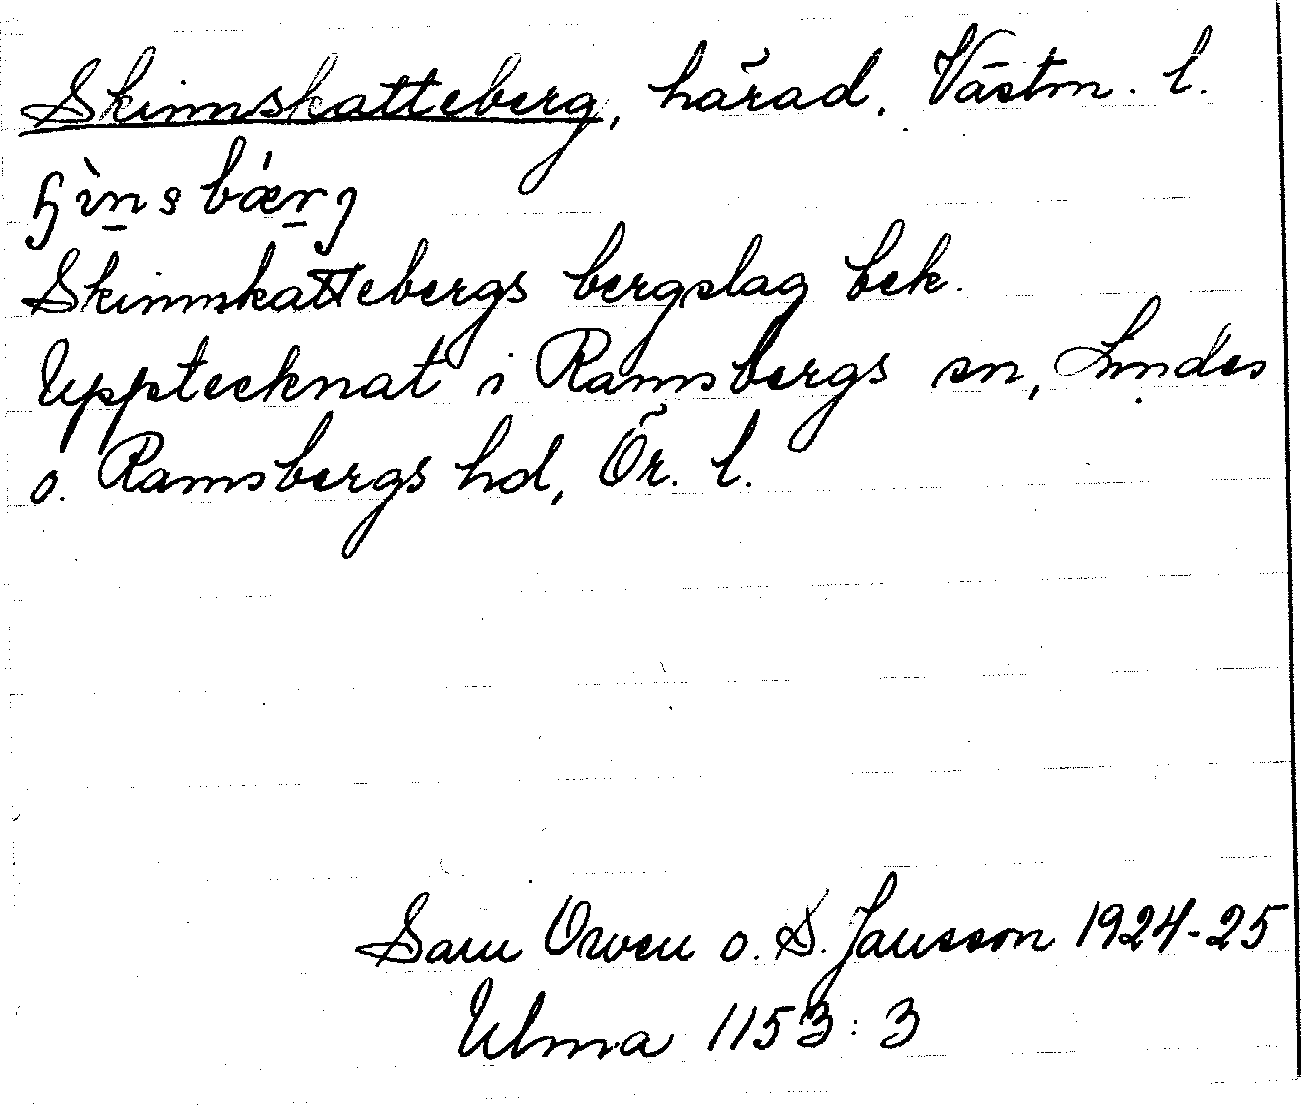 Skinnskatteberg, härad. Västm. l.
ɧìn̲sbǽr̲g
Skinnskattebergs bergslag bek.
Upptecknat i Ramsbergs sn, Lindes
o. Ramsbergs hd, Ör. l.
Sam Owen o. S. Jansson 1924-25
Ulma 1153:3